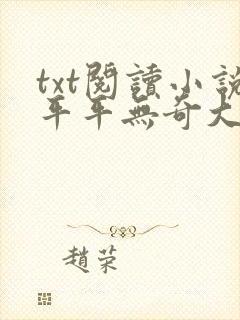 txt閱讀小說
平平無奇大
趙荣